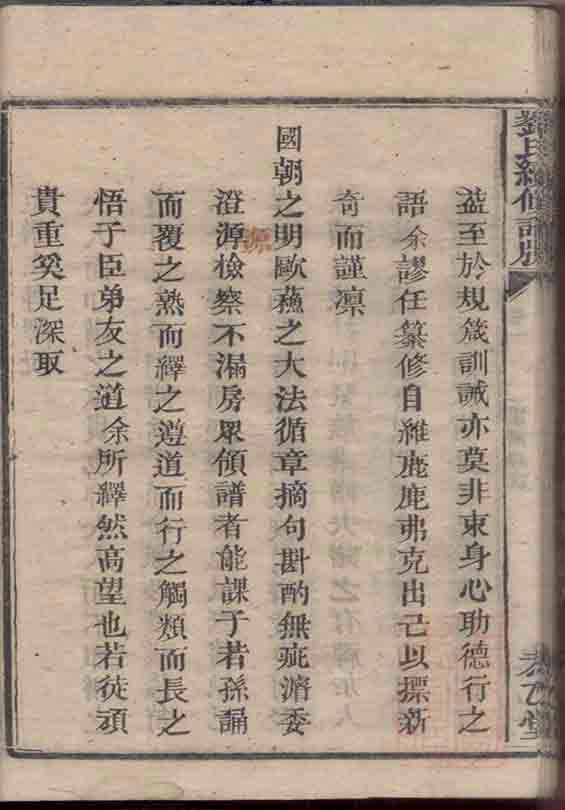 益至於規箴訓誡亦莫非束身心助德行之
語余謬任纂修自維鹿鹿弗克出己以摽新
奇而謹凛
國朝之明歐蘓之大法循章摘句斟酌無疵濟委
澄源檢察不漏房眾領譜者能課子若孫誦
源
而覆之熟而繹之遵道而行之觸類而長之
悟于臣弟友之道余所繹然高望也若徒項
貴重奚足深取
氏續修譜
堂